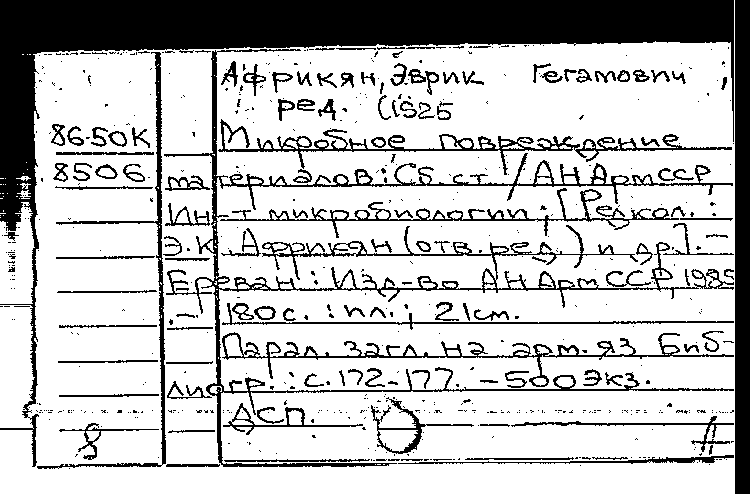 Африкян, Эврик Гегамович,
ред. (1925
86-50К Микробное повреждение
8506 материалов : Сб. ст. / АН АрмССР,
Ин-т микробиологии ; [Редкол. :
Э.К. Африкян (отв. ред.) и др.]. -
Ереван : Изд-во АН АрмССР, 1985
. - 180 с. : ил. ; 21 см.
Парал. загл. на арм. яз. Биб-
лиогр. : с. 172-177. - 500 экз.
ДСП.
8 А